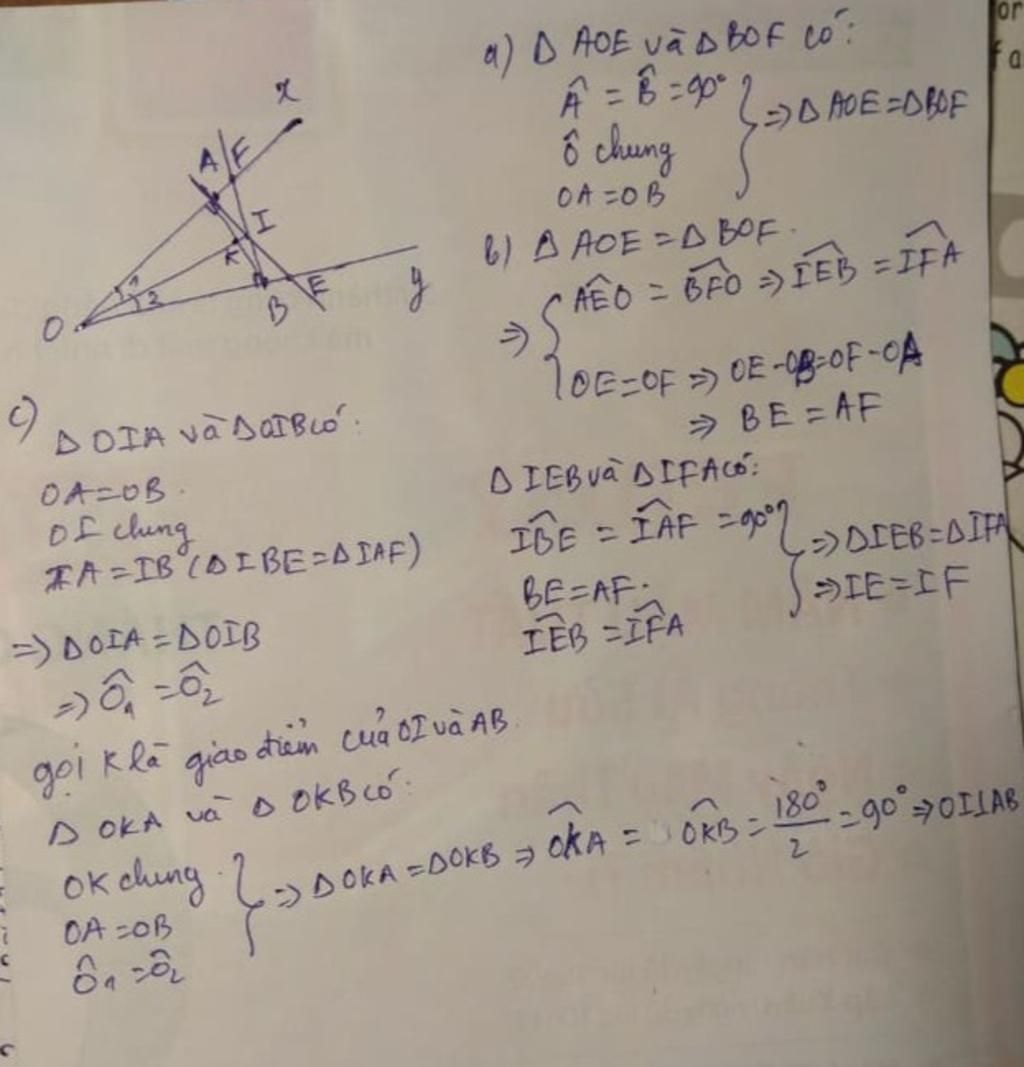 x
A F
I
K
1
2
O
B
E
y
a) Δ AOE và Δ BOF có:
Â = B̂ = 90°
Ô chung
OA = OB
=> Δ AOE = Δ BOF
b) Δ AOE = Δ BOF.
=> { AÊO = BF̂O => IÊB = IF̂A
OE = OF => OE - OB = OF - OA
=> BE = AF
Δ IEB và Δ IFA có:
IB̂E = IÂF = 90°
BE = AF.
IÊB = IF̂A
=> Δ IEB = Δ IFA
=> IE = IF
c)
Δ OIA và Δ OIB có:
OA = OB.
OI chung
IA = IB (Δ IBE = Δ IAF)
=> Δ OIA = Δ OIB
=> Ô₁ = Ô₂
gọi K là giao điểm của OI và AB.
Δ OKA và Δ OKB có:
OK chung.
OA = OB
Ô₁ = Ô₂
=> Δ OKA = Δ OKB => OK̂A = OK̂B = 180°/2 = 90° => OI⊥AB
or
f a